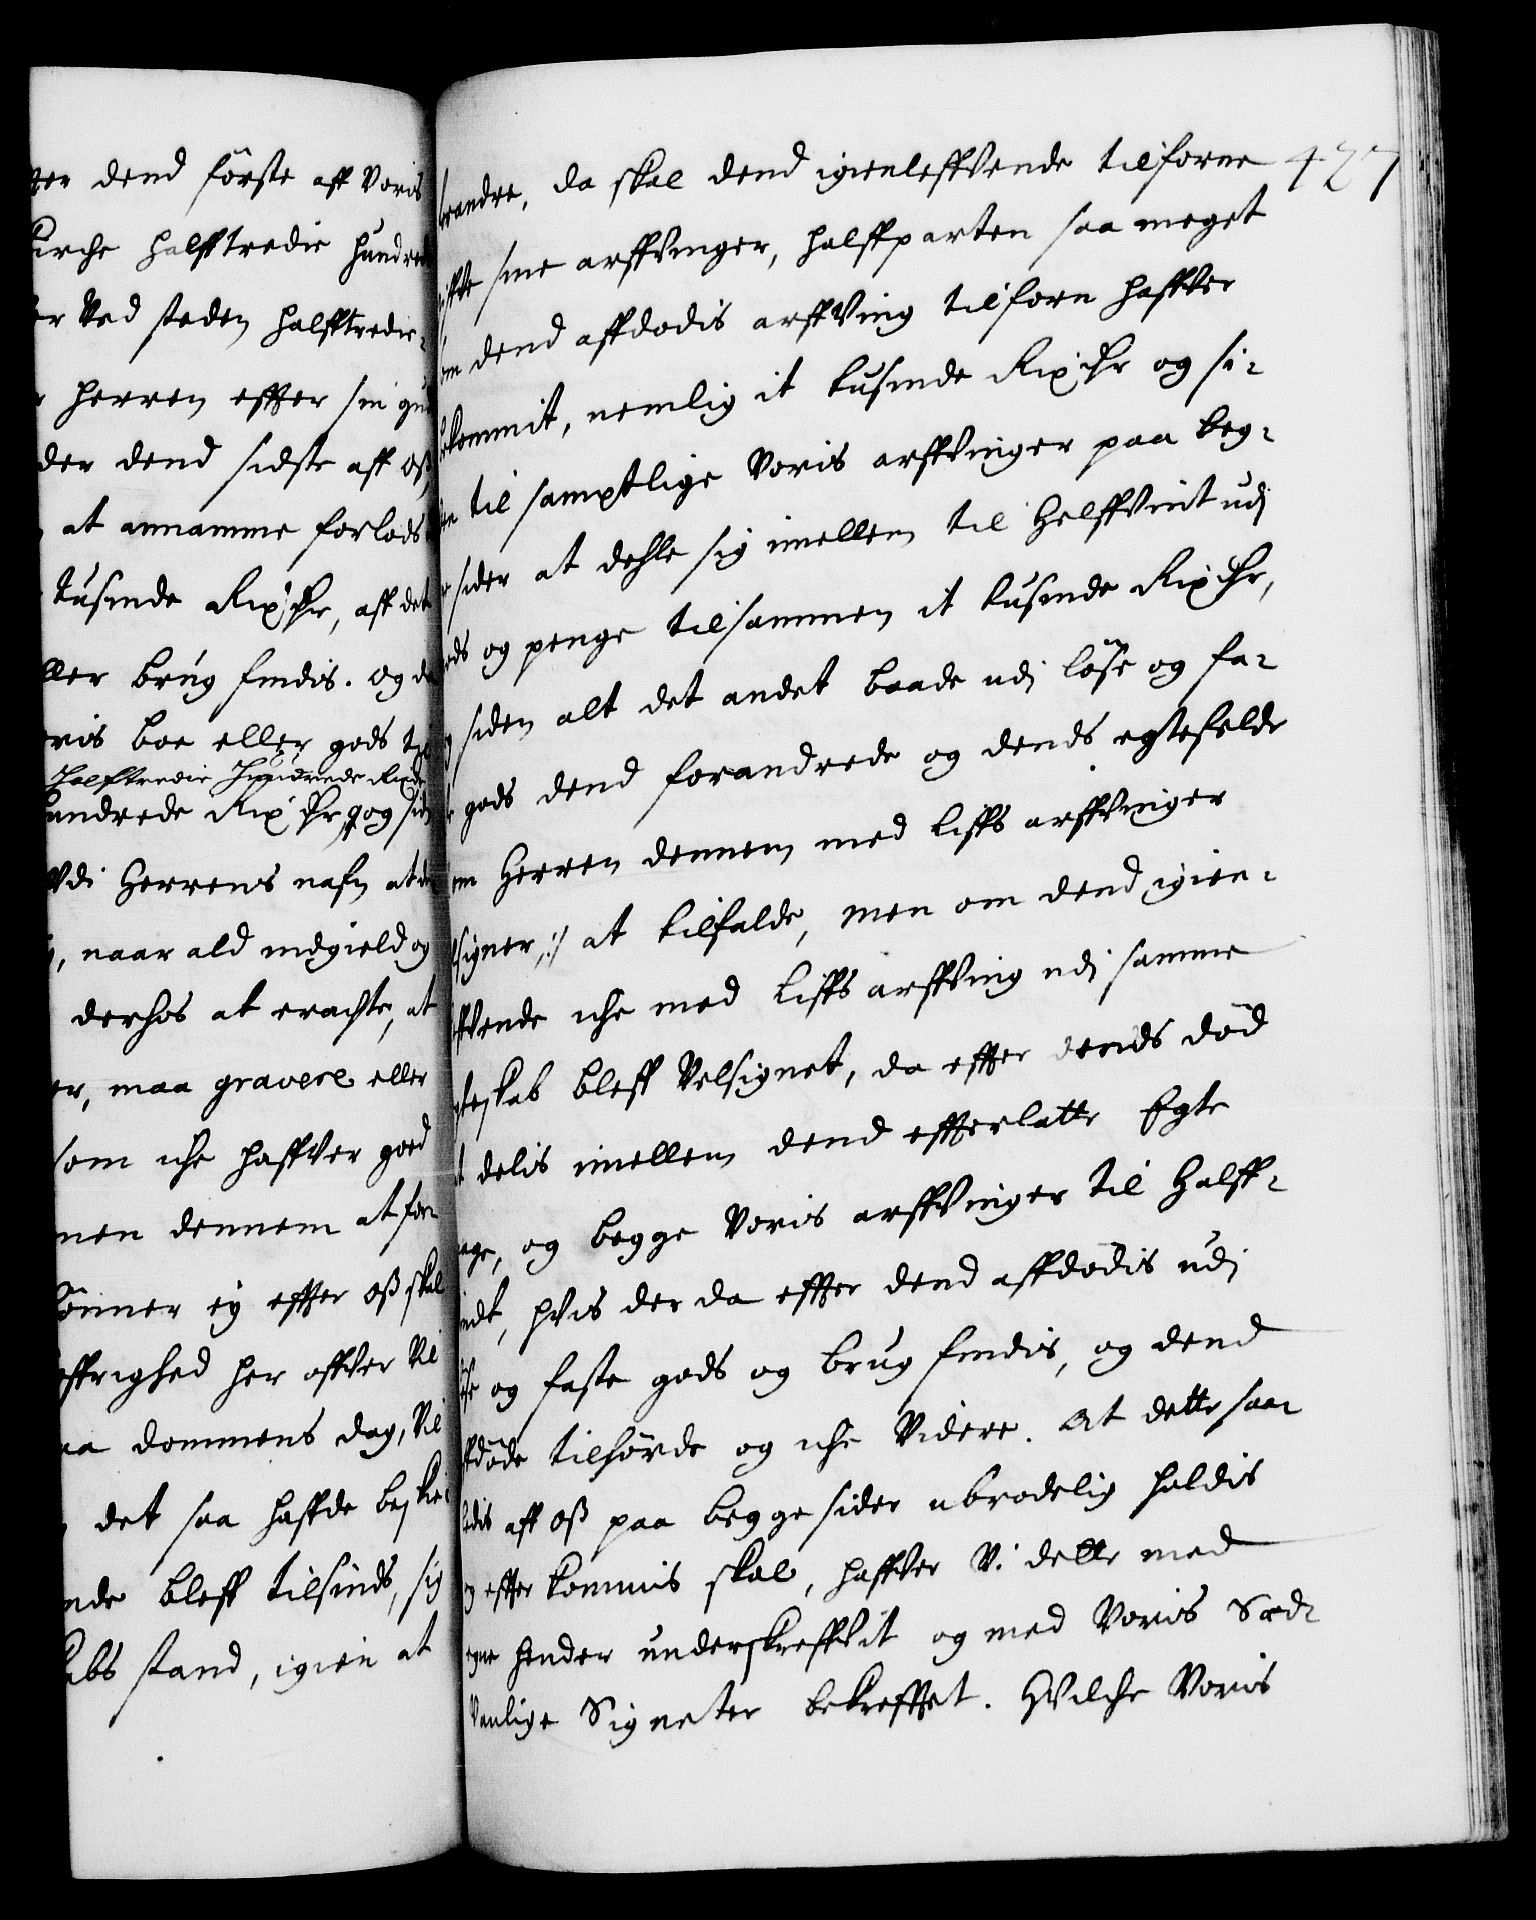 dend förste aff Voris
kirche halfftredie hundre
Ved steden halfftredie-
herren effter sin gu
der dend sidste aff oß
at annamme forlods
tusinde Rix dr, aff det
ller brug findis. og d
voris boe eller gods
Halftredie Hundrede Rixd
undrede Rix dr, og si
Vdi Herrens nafn at
, naar ald indgield og
derhos at erachte, at
er, maa gravere eller
som iche haffver goed
men dennem at for
Sönner ey effter oß skal
öffrighed her offver vil
paa dommens dag, vil
det saa haffde beskic
nde bleff tilsinds, sig
skabs stand, igien at
427
forandre, da skal dend igienleffvende tilforne
skiffte sine arffvinger, halffparten saa meget
som dend affdödis arffving tilforn haffver
bekommit, nemlig it tusinde Rix dr og si-
den til samptlige Voris arffvinger paa beg-
ge sider at dehle sig imellem til Helffvint udj
gods og penge tilsammen it tusinde Rix dr,
og siden alt det andet baade udj löse og fa-
ste gods dend forandrede og dends egtefelde
om Herren dennem med Liffs arffvinger
velsigner :/ at tilfalde, men om dend igien-
leffvende iche med Liffs arffving udj samme
Egteskab bleff Velsignet, da effter dends död
at delis imellem dend effterlatte Egte
mage, og begge Voris arffvinger til Halff-
vindt, hvis der da effter dend affdödis udj
löse og faste gods og brug findis, og dend
affdöde tilhörde og iche Videre. At dette saa-
ledis aff oß paa begge sider ubrödelig holdis
og effterkommis skal, haffver Vi dette med
egne hender underskreffvit og med Voris Sæd-
vanlige Signeter bekrefftet. Hvilche Voris